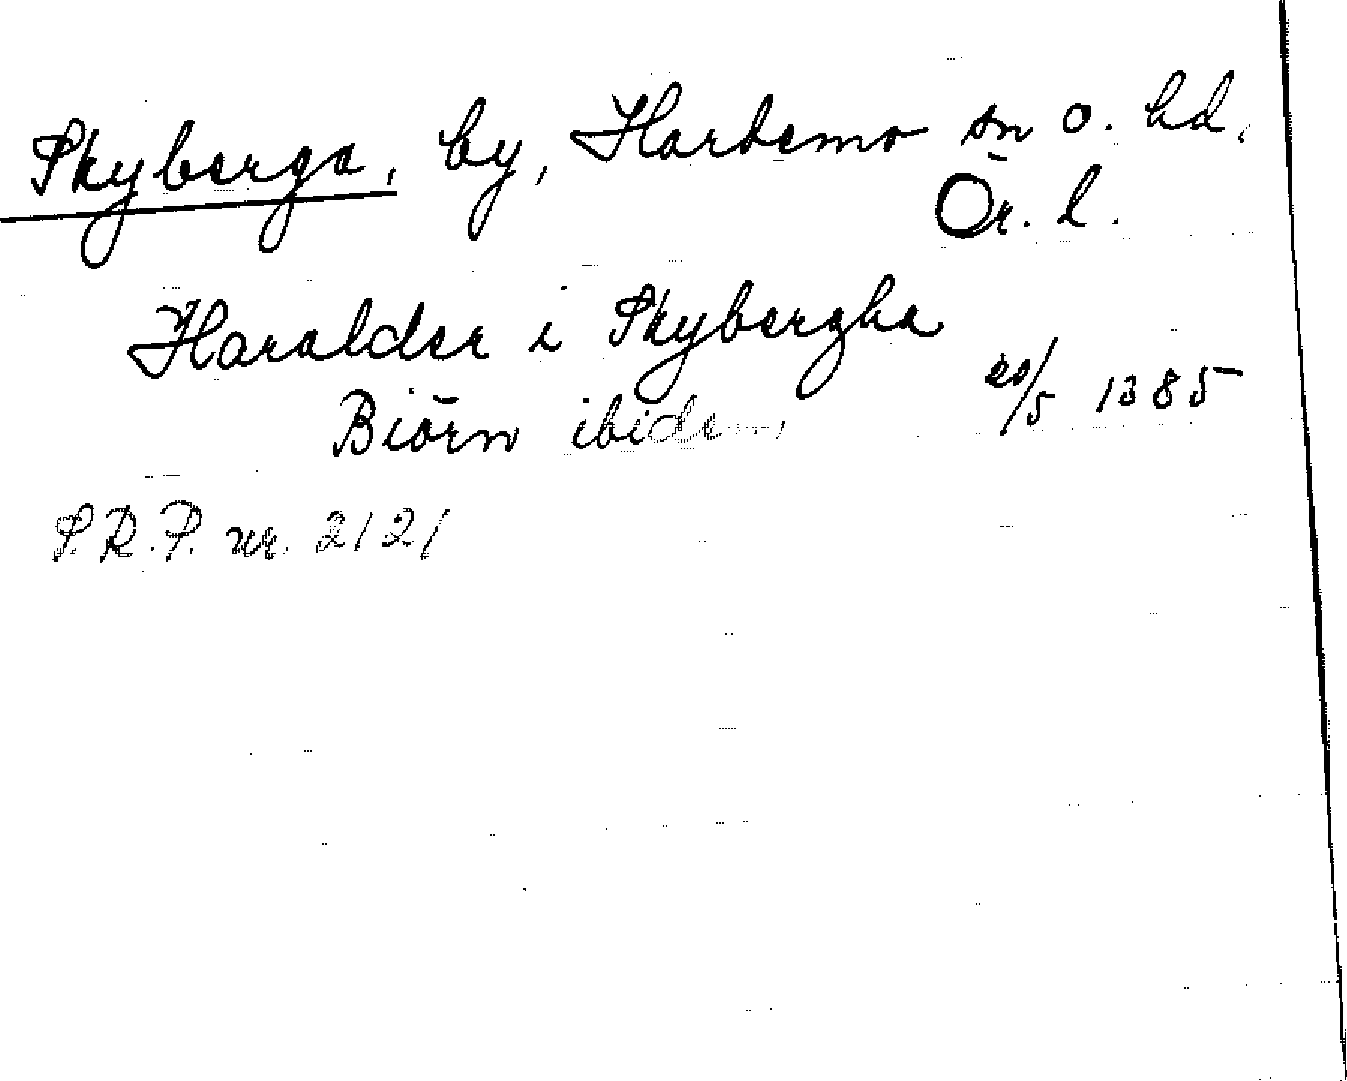 Skyberga, by, Hardemo sn o. hd,
Ör. l.
Haralder i Skybergha
Biörn ibidem, 20/5 1385
S.R.P. nr. 2121